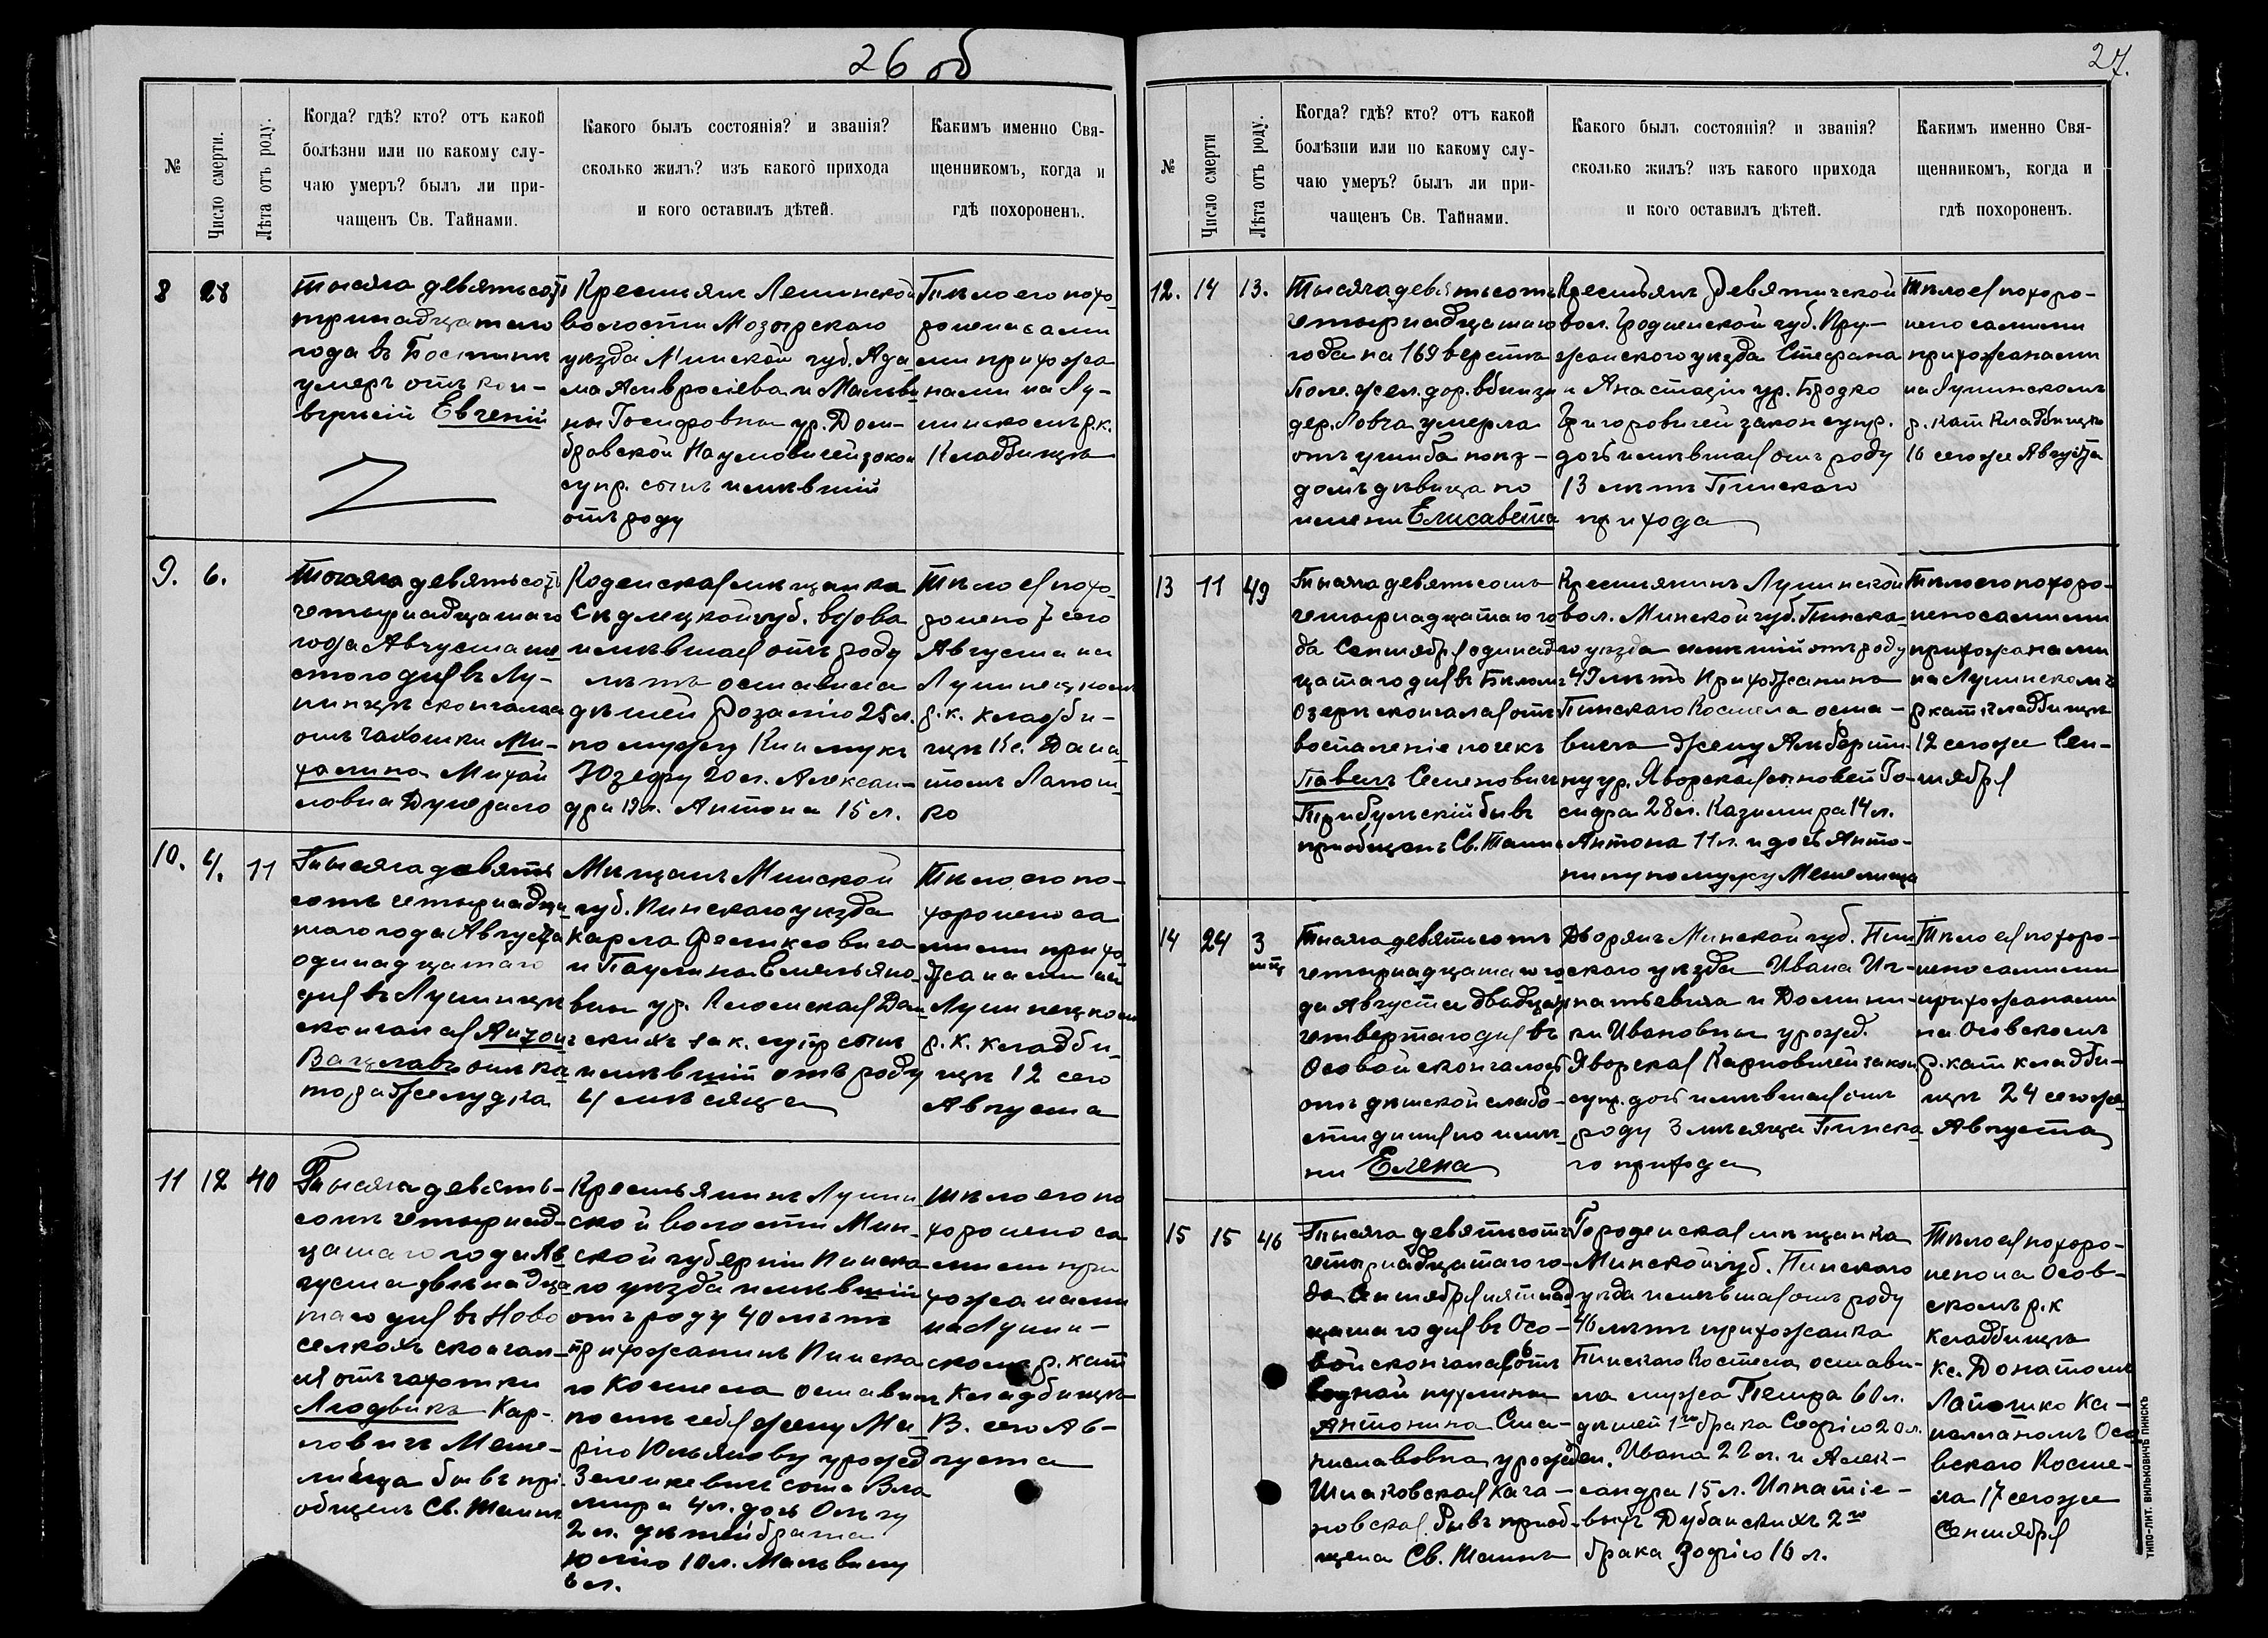 26 об
№
Число смерти.
Лѣта отъ роду.
Когда? гдѣ? кто? отъ какой
болѣзни или по какому слу-
чаю умеръ? былъ ли при-
чащенъ Св. Тайнами.
Какого былъ состоянія? и званія?
сколько жилъ? изъ какого прихода
и кого оставилъ дѣтей.
Какимъ именно Свя-
щенникомъ, когда и
гдѣ похороненъ.
8
28
Тысяча девятьсотъ
тринадцатаго
года въ Бостынѣ
умеръ отъ кон-
вульсій Евгеній
Крестьянъ Ленинской
волости Мозырскаго
уѣзда Минской губ. Ада-
ма Амвросіева и Мальви-
ны Іосифовны ур. Дом-
бровской Наумовичей закон
супр. сынъ имѣвшій
отъ роду
Тѣло его похо-
ронено сами-
ми прихожа-
нами на Лу-
нинскомъ р.к.
Кладбищѣ
9.
6.
Тысяча девятьсотъ
четырнадцатаго
года Августа ше-
стого дня въ Лу-
нинцѣ скончалась
отъ чахотки Ми-
халина Михай
ловна
Коденская мѣщанка
Сѣдлецкой губ. вдова
имѣвшая отъ роду
лѣтъ оставила
дѣтей Розалію 25 л.
по мужу
Юзефу 20 л. Алексан-
дра 19 л. Антона 15 л.
Тѣло ея похо-
ронено 7 сего
Августа на
Лунинецкомъ
р.к. кладби-
щѣ Кс. Дона
томъ Лапош-
ко
10.
4.
11
Тысяча девять
сотъ четырнадца
таго года Августа
одинадцатаго
дня въ Лунинцѣ
скончался Антонъ
Вацлавъ отъ ка-
тора желудка
Мѣщанъ Минской
губ. Пинскаго уѣзда
Карла Феликсовича
и Паулины Емельяно-
вны ур.
скихъ зак. супр сынъ
имѣвшій отъ роду
4 мѣсяца
Тѣло его по-
хоронено са
мими прихо-
жанами на
Лунинецкомъ
р.к. кладби-
щѣ 12 сего
Августа
11
12
40
Тысяча девять-
сотъ четырнад-
цатаго года Ав
густа двѣнадца
таго дня въ Ново
селкахъ скончал-
ся отъ чахотки
Людвикъ Кар-
ловичъ Меше-
лица бывъ прі-
общенъ Св. Таинъ
Крестьянинъ Лунин
ской волости Мин-
ской губерніи Пинска-
го уѣзда имѣвшій
отъ роду 40 лѣтъ
прихожанинъ Пинска
го Костела оставилъ
послѣ себя жену Ма-
рію Юльянову урожд
Зеленкевичъ сына Вла
мира 4 л. дочь Ольгу
2 л. дѣтей брата
Юлію 10 л. Мальвину
6 л.
Тѣло его по
хоронено са
мими при
хожанами
на Лунин-
скомъ р. кат
Кладбищѣ
В. сего Ав-
густа
27.
№
Число смерти
Лѣта отъ роду.
Когда? гдѣ? кто? отъ какой
болѣзни или по какому слу-
чаю умеръ? былъ ли при-
чащенъ Св. Тайнами.
Какого былъ состоянія? и званія?
сколько жилъ? изъ какого прихода
и кого оставилъ дѣтей.
Какимъ именно Свя-
щенникомъ, когда и
гдѣ похороненъ.
12.
14
13.
Тысяча девятьсотъ
четырнадцатаго
года на 169 верстѣ
Полѣ. жел. дор. вблизи
дер. Ловча умерла
отъ ушиба поѣз-
домъ дѣвица по
имени Елисавета
Крестьянъ Девятичской
вол. Гродненской губ. Пру-
жанскаго уѣзда Стефана
и Анастасіи ур. Бродко
Григоровичей закон супр.
дочь имѣвшая отъ роду
13 лѣтъ Пинскаго
прихода
Тѣло ея похоро-
нено самими
прихожанами
на Лунинскомъ
р. кат Кладбищѣ
16 сего же Августа
13
11
49
Тысяча девятьсотъ
четырнадцатаго го-
да Сентября одинад
цатаго дня въ Бѣломъ
Озерѣ скончался отъ
воспаленіе почекъ
Павелъ Семеновичъ
Трибульскій бывъ
пріобщенъ Св. Таинъ
Крестьянинъ Лунинской
вол. Минской губ. Пинска-
го уѣзда имѣвшій отъ роду
49 лѣтъ Прихожанинъ
Пинскаго Костела оста-
вилъ Жену Альберти-
ну ур. Яворская сыновей Іо-
сифа 28 л. Казимира 14 л.
Антона 11 л. и дочь Анто-
нину по мужу Мешелица
Тѣло его похоро-
нено самими
прихожанами
на Лунинскомъ
р кат кладбищѣ
12 сего же Сен-
тября
14
24
3
мѣ
Тысяча девятьсотъ
четырнадцатаго го
да Августа двадцать
четвертаго дня въ
Особой скончалась
отъ дѣтской слабо-
сти дитя по име-
ни Елена
Дворянъ Минской губ. Пин
скаго уѣзда Ивана Иг-
натьевича и Домини-
ки Ивановны урожд.
Яворская Карповичей закон
супр. дочь имѣвшая отъ
роду 3 мѣсяца Пинска-
го прихода
Тѣло ея похоро-
нено самими
прихожанами
на Осовскомъ
р. кат кладби-
щѣ 24 сего же
Августа
15
15
46
Тысяча девятьсотъ
четырнадцатаго го-
да Сентября пятнад
цатаго дня въ Осо-
вой скончалась отъ
водной пухлины
Антонина Ста-
ниславовна урожден.
Шпаковская Кача-
новская. бывъ приоб-
щена Св. Таинъ
Городенская мѣщанка
Минской губ. Пинскаго
уѣзда имѣвшая отъ роду
46 лѣтъ прихожанка
Пинскаго Костела остави-
ла мужа Петра 60 л.
дѣтей 1го брака Софію 20 л.
Ивана 22 л. и Алек-
сандра 15 л. Игнатіе-
выхъ Дубанскихъ 2го
брака Зофію 16 л.
Тѣло ея похоро-
нено на Осов-
скомъ р.к
Кладбищѣ
Кс. Донатомъ
Лапошко Ка-
пелланомъ Осо
вскаго Косте-
ла 17 сего же
Сентября
ТИПО-ЛИТ. ВИЛЬКОВИЧЪ ПИНСКЪ